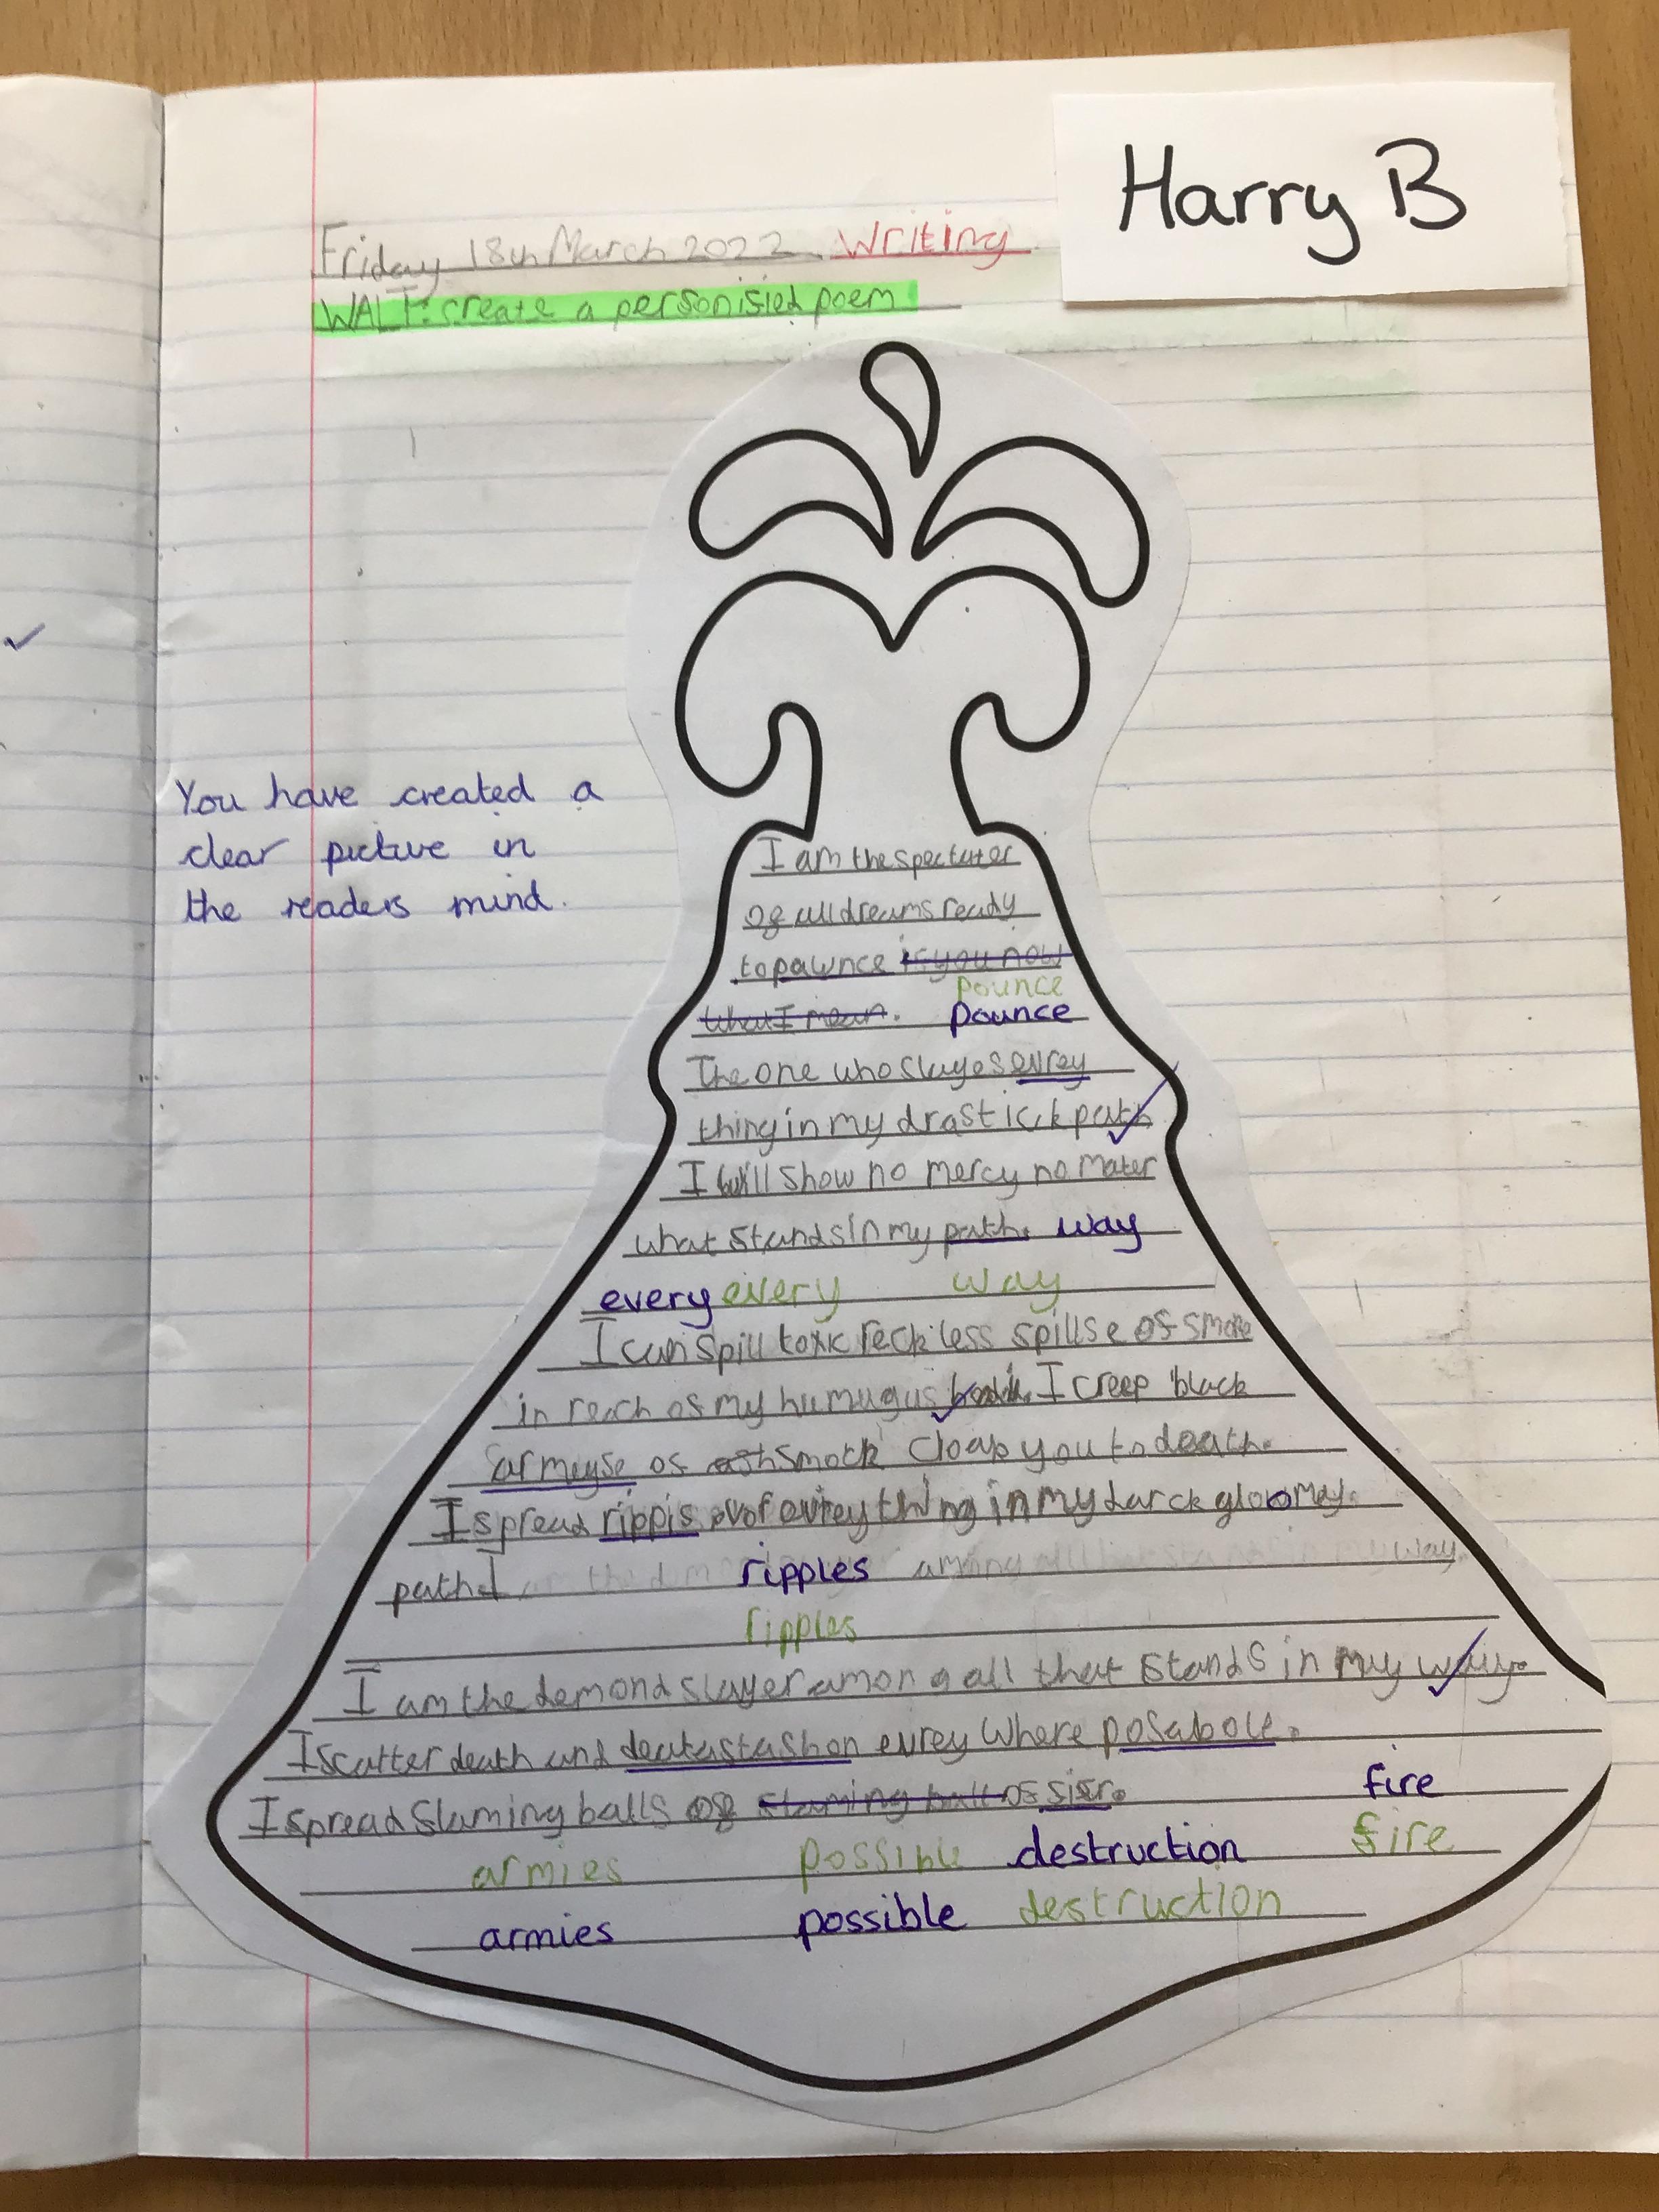 Harry B
Friday 18th March 2022. Writing
WALT: create a personified poem
You have created a
clear picture in
the readers mind.
I am the spectater
of all dreams ready
to pawnce if you now
pounce
what I mean. pounce
The one who slayes evrey
thing in my drastickk path
I will show no mercy no mater
what stands in my path. way
every every way
I can spill toxic reckless spillse of smoke
in reach of my humugus I creep black
armeyse of smock cloak you to death.
I spread rippis over evrey thing in my darck gloomey.
path I am the ripples among all that stands in my way.
ripples
I am the demond slayer among all that stands in my way.
I scatter death and deatastashon evrey where posabole.
I spread flaming balls of flaming ball of fier. fire
armies possible destruction fire
armies possible destruction